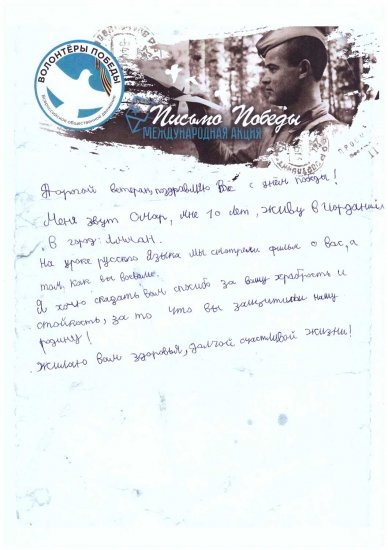 ВОЛОНТЁРЫ ПОБЕДЫ
Всероссийское общественное движение
Письмо Победы
МЕЖДУНАРОДНАЯ АКЦИЯ
Дорогой ветеран, поздравляю Вас с днём победы!
Меня зовут Омар, мне 10 лет, живу в Иордании
В город:
На уроке русского языка мы смотрели фильм о вас, а
том, как вы воевали.
Я хочу сказать вам спосибо за вашу храбрость и
стойкость, за то что вы защитили нашу
родину!
Жилаю вам здоровья, далгой счастливой жизни!